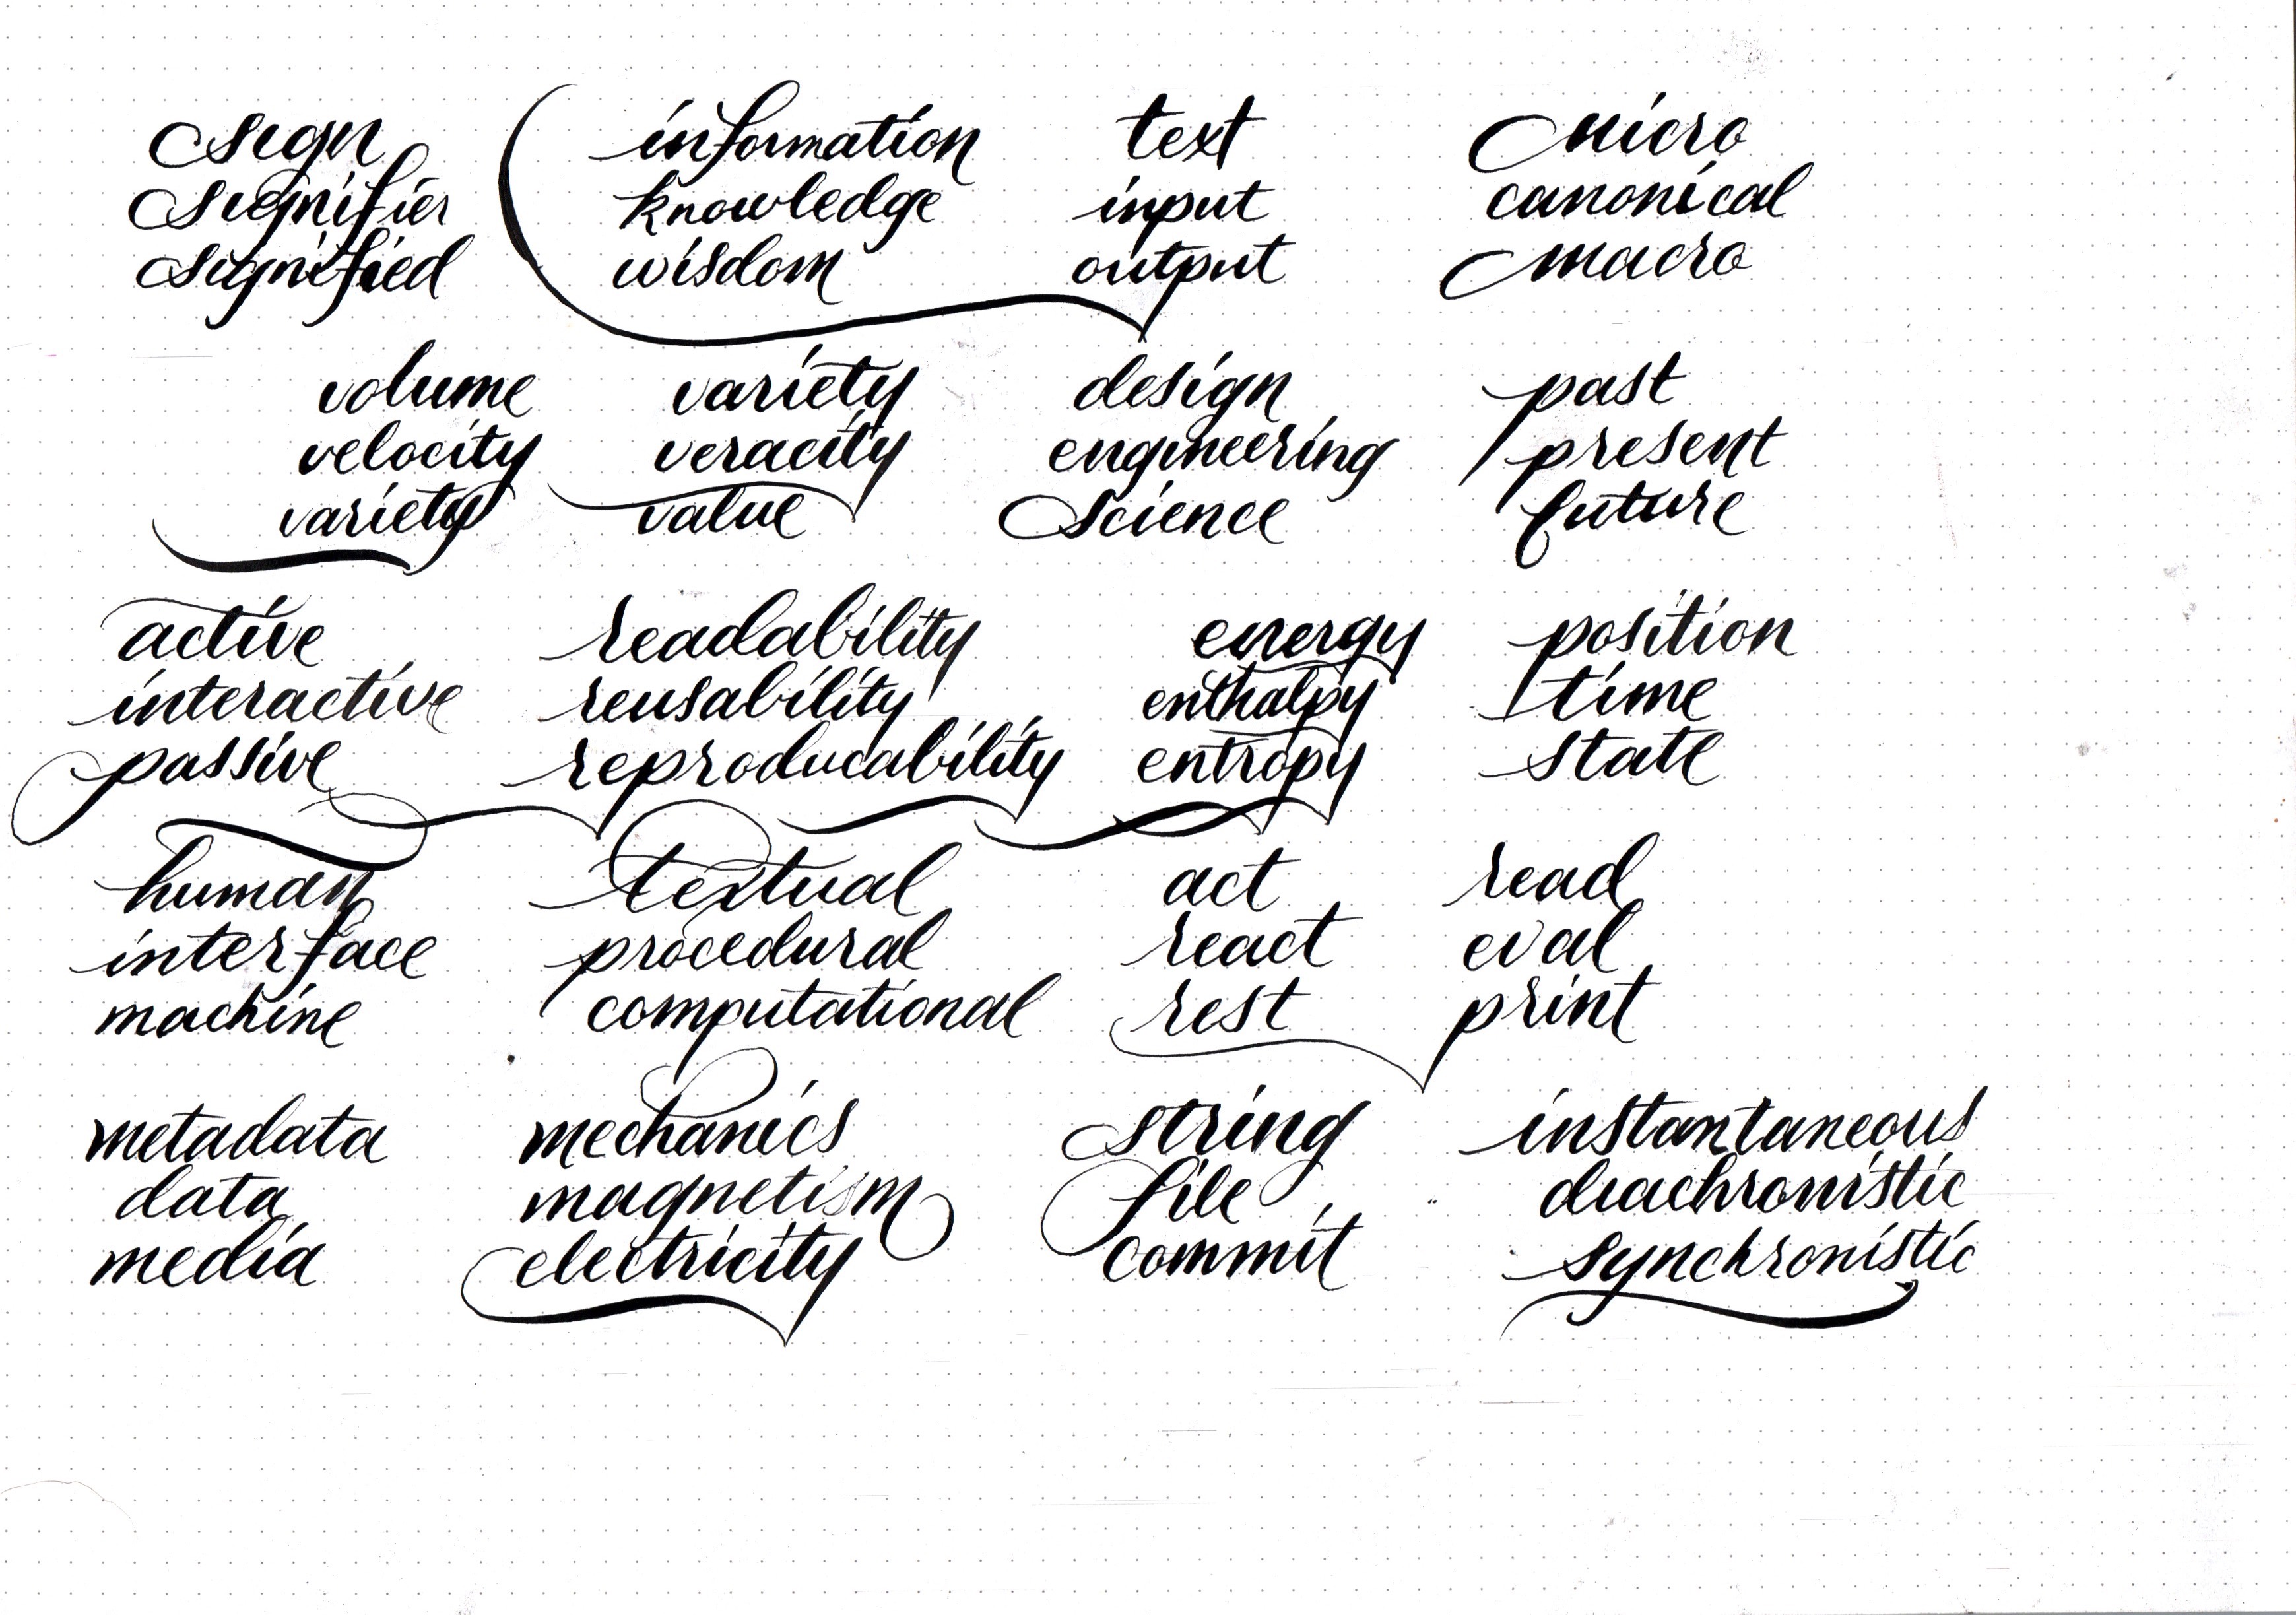 sign
signifier
signified
information
knowledge
wisdom
text
input
output
micro
canonical
macro
volume
velocity
variety
variety
veracity
value
design
engineering
science
past
present
future
active
interactive
passive
readability
reusability
reproducability
energy
enthalpy
entropy
position
time
state
human
interface
machine
textual
procedural
computational
act
react
rest
read
eval
print
metadata
data
media
mechanics
magnetism
electricity
string
file
commit
instantaneous
diachronistic
synchronistic